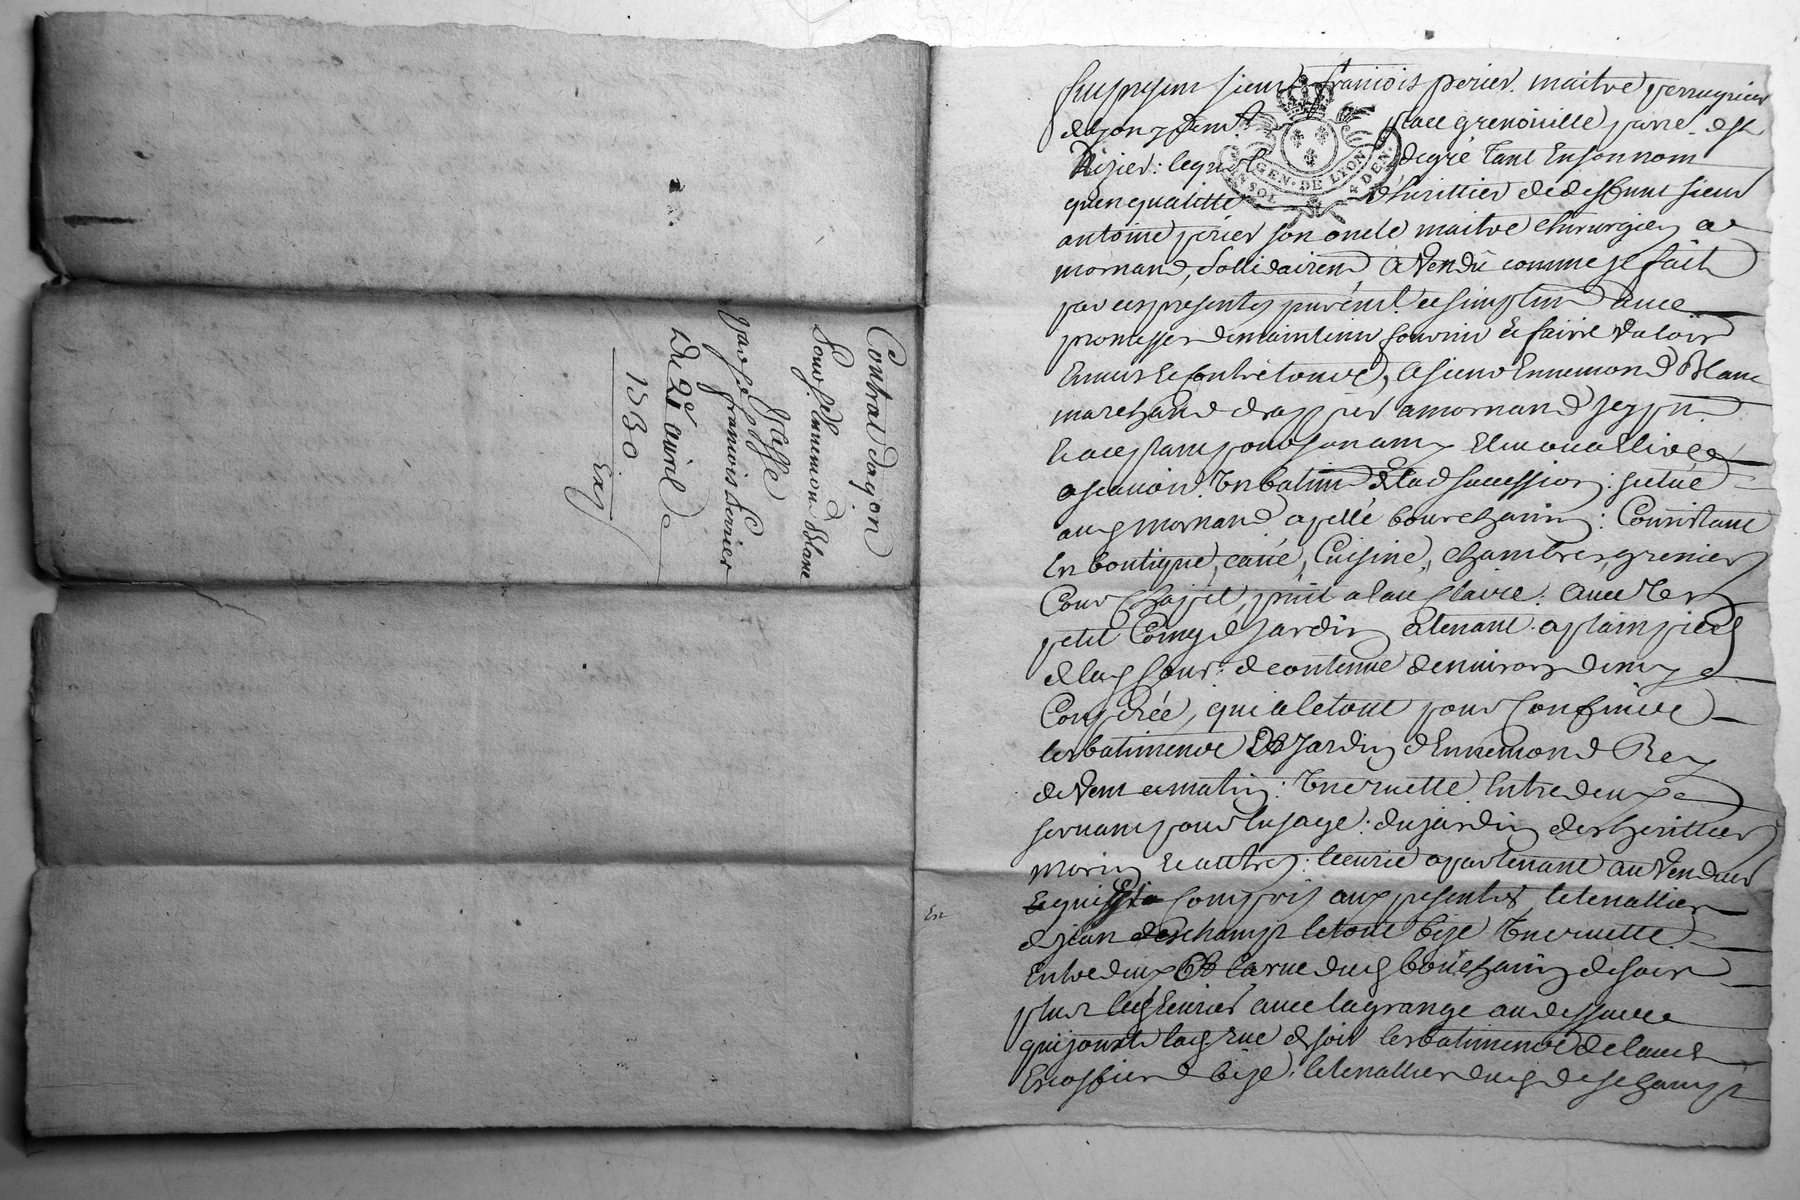 Contrat daqon
Pour sr Ennemond Blanc
Passé
par sr françois perrier
Du 2e avril
1730
Exp
fut present sieur françois perier maitre perruquier
de Lyon y dem.t place grenouille parr. de st
Nizier: lequel de gré tant en son nom
quen qualitté d'hérittier de deffunt sieur
antoine perier son oncle maitre chirurgien a
mornand, sollidairem.t a vendu comme se fait
par ces presentes purem.t et simplem.t avec
promesses de maintenir fournir et faire valoir
Envers et contre tous, a sieur Ennemond Blanc
marchand drappier a mornand
et acceptant pour
a scavoir. Un batim.t de lad succession: scitué
aud mornand apellé bourchanin: Consistant
En boutique, cave, Cuisine, chambres, grenier
Cour chapit, puit a eau claire: avec Un
petit Coing de Jardin atenant a plain pied
de lad Cour: de contenue denviron demy
Couperée, qui a le tout pour Confins
les batiments et Jardin dEnnemond Rey
de vent et matin: Une ruette Entre deux
servant pour lusage du jardin des herittiers
morin et autres: lecurie apartenant au vendeur
compris aux presentes, le tenallier
de jean deschamps le tout bize Une ruette
Entre deux Et la rue dud bourchanin de soir
plus lad Ecurie avec la grange au dessus
qui jouxte lad rue de soir les batiments de
bize, le tenallier dud deschamps
GEN. DE LYON
SOL
4 DEN.
En